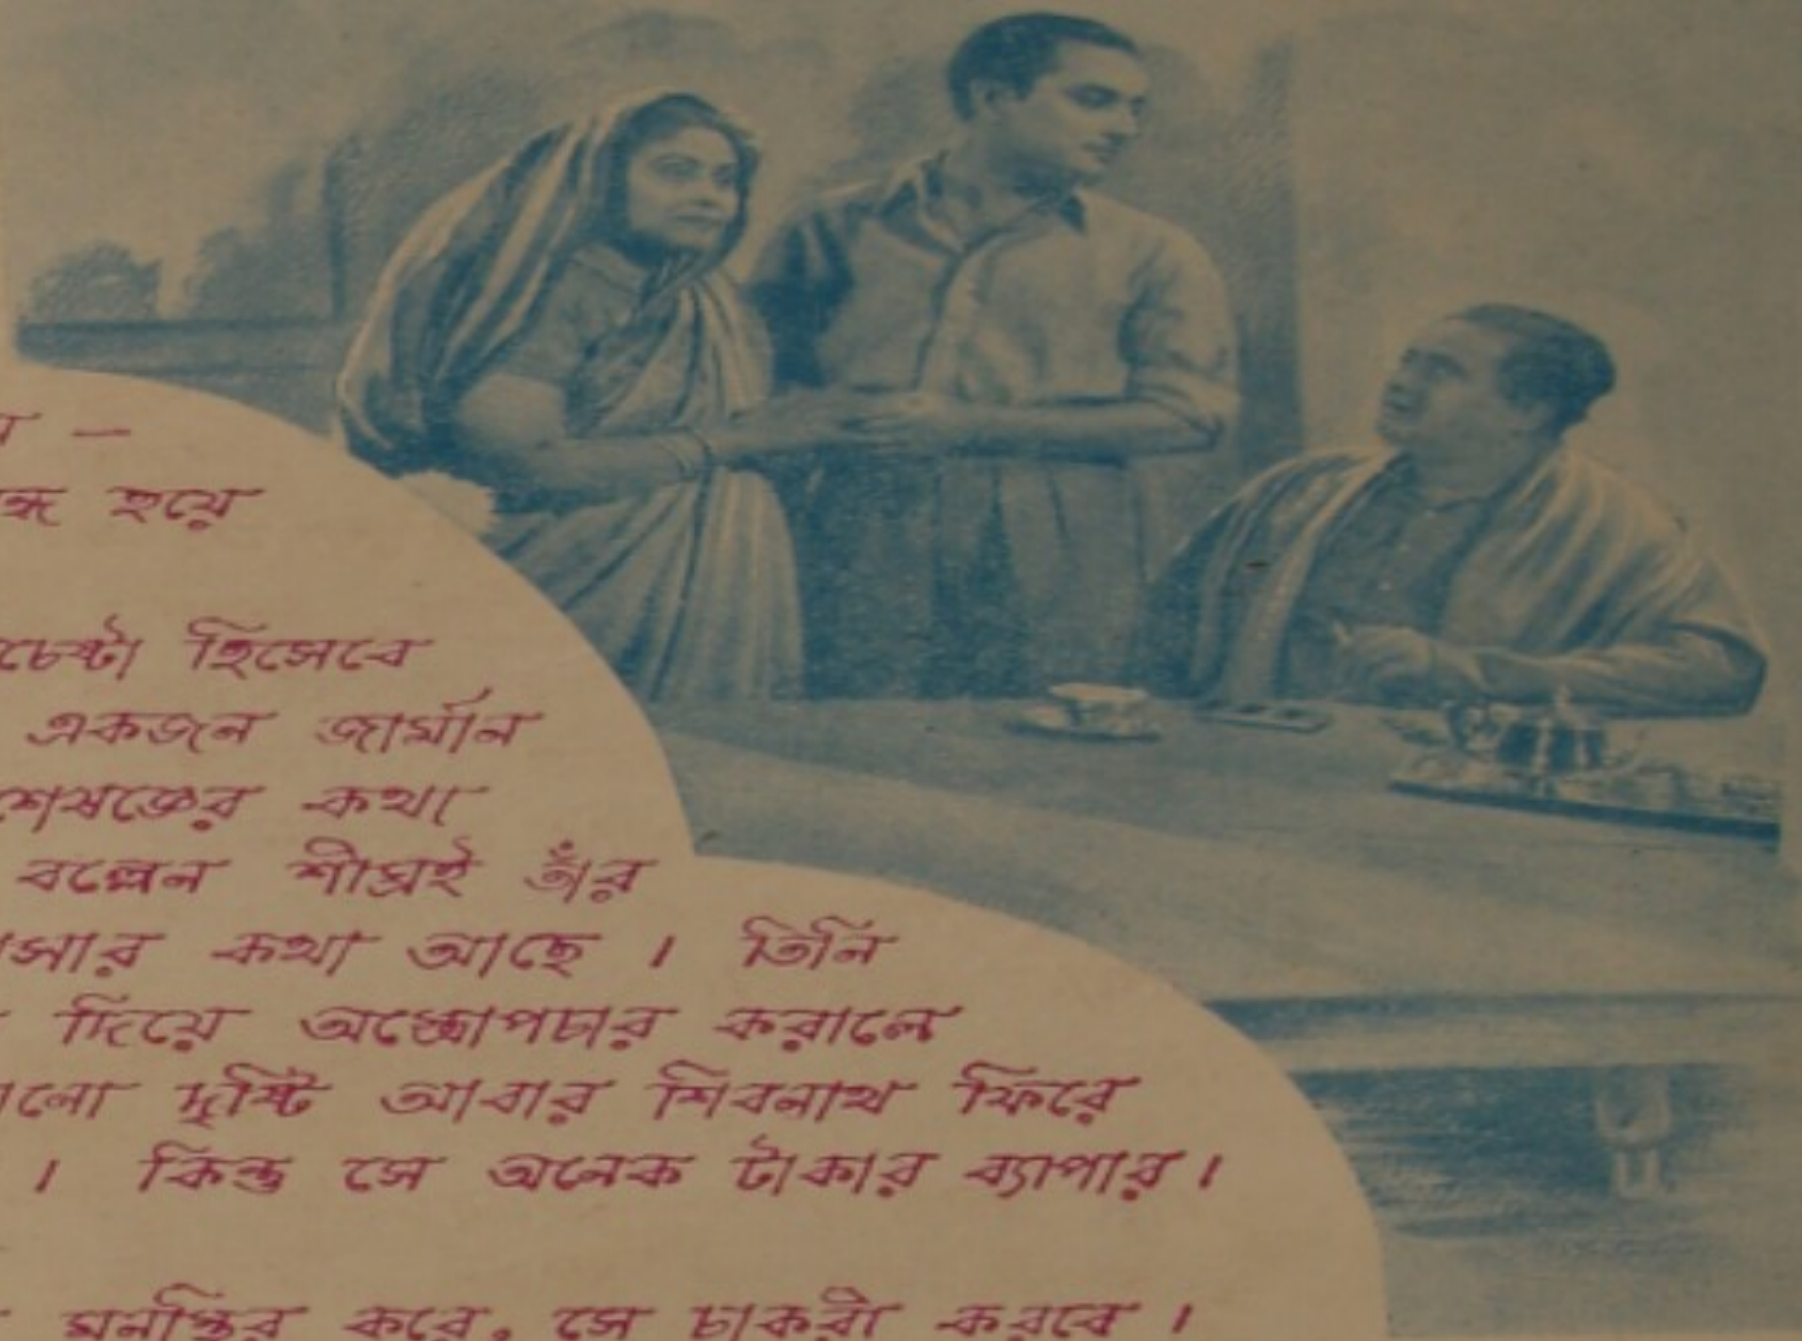 —
হয়ে
চেষ্টা হিসেবে
একজন জার্মান
কথা
বল্লেন শীঘ্রই তাঁর
কথা আছে । তিনি
দিয়ে অস্ত্রোপচার করালে
দৃষ্টি আবার শিবনাথ ফিরে
। কিন্তু সে অনেক টাকার ব্যাপার ।
মনস্থির করে, সে চাকরী করবে ।